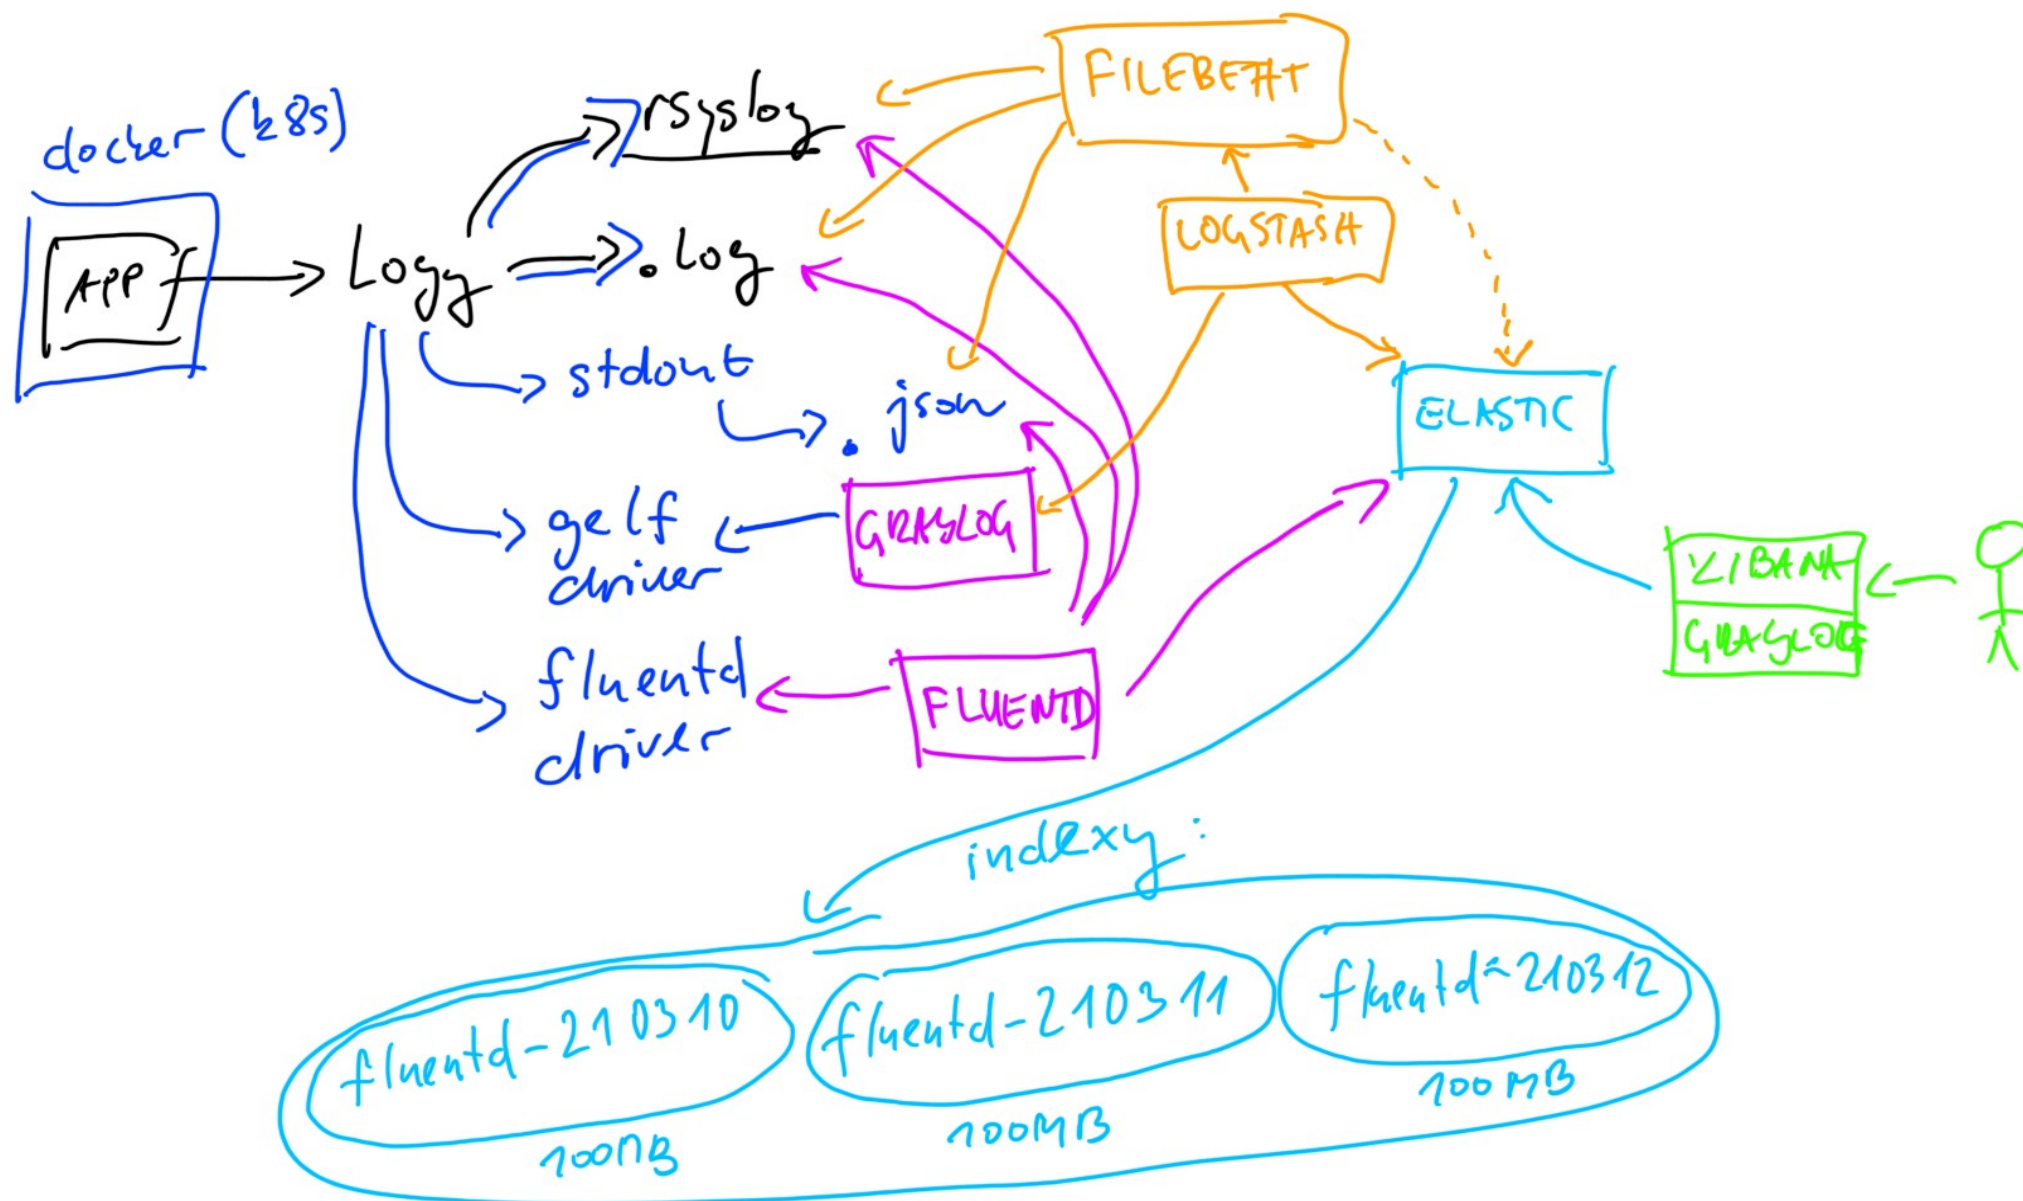 docker (k8s)
APP
Logy
rsyslog
.log
stdout
.json
gelf
driver
fluentd
driver
FILEBEAT
LOGSTASH
ELASTIC
GRAYLOG
FLUENTD
KIBANA
GRAYLOG
indexy:
fluentd-210310
100MB
fluentd-210311
100MB
fluentd-210312
100MB